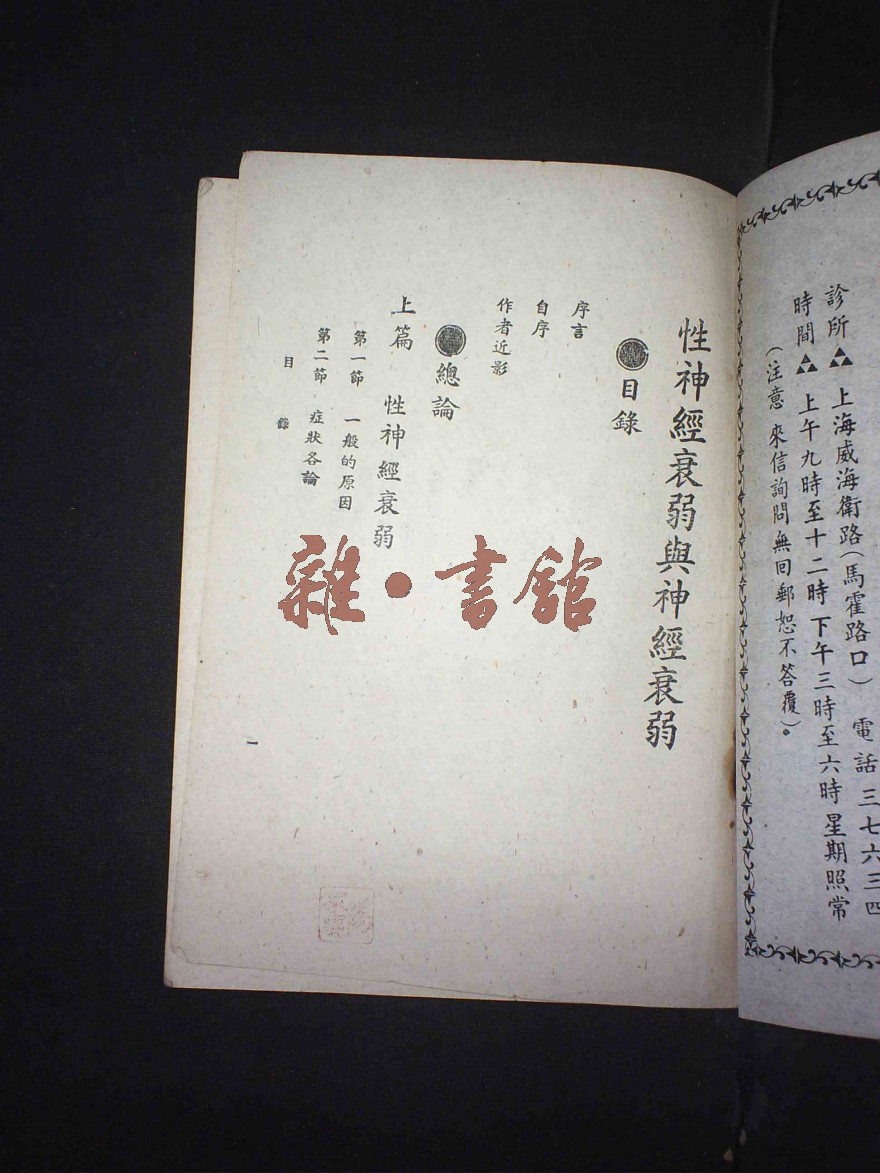 診所 上海威海衛路(馬霍路口) 電話三七六三四
時間 上午九時至十二時下午三時至六時星期照常
(注意 來信詢問無回郵恕不答覆)。
性神經衰弱與神經衰弱
目錄
序言
自序
作者近影
總論
上篇 性神經衰弱
第一節 一般的原因
第二節 症狀各論
目 錄
一
雜·書館